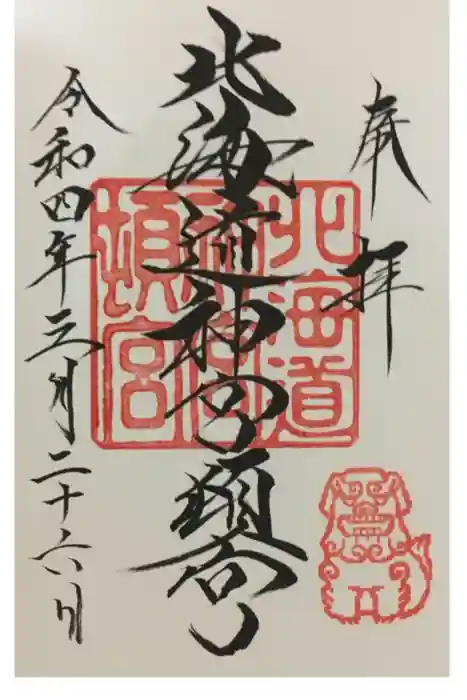 奉拝
北海道神宮頓宮
北海道
神宮
頓宮
令和四年三月二十六日